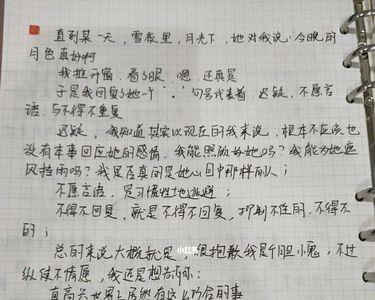 直到某一天，雪夜里，月光下，她对我说：今晚的
月色真好啊
我推开窗，看了眼，嗯，还真是
于是我回复了她一个“。”句号代表着，迟疑，不愿言
语，与不得不重复
迟疑，我知道其实以现在的我来说，根本不应该，也
没有本事回应她的感情，我能照顾好她吗？我能为她遮
风挡雨吗？我是否真的是她心目中那样的人；
不愿言语，是习惯性地逃避；
不得不回复，就是不得不回复，抑制不住的，不得不
的；
小红书
总的来说大概就是，很抱歉我是个胆小鬼，不过
纵使不情愿，我还是想告诉你：
有高兴世界上居然有这么巧合的事